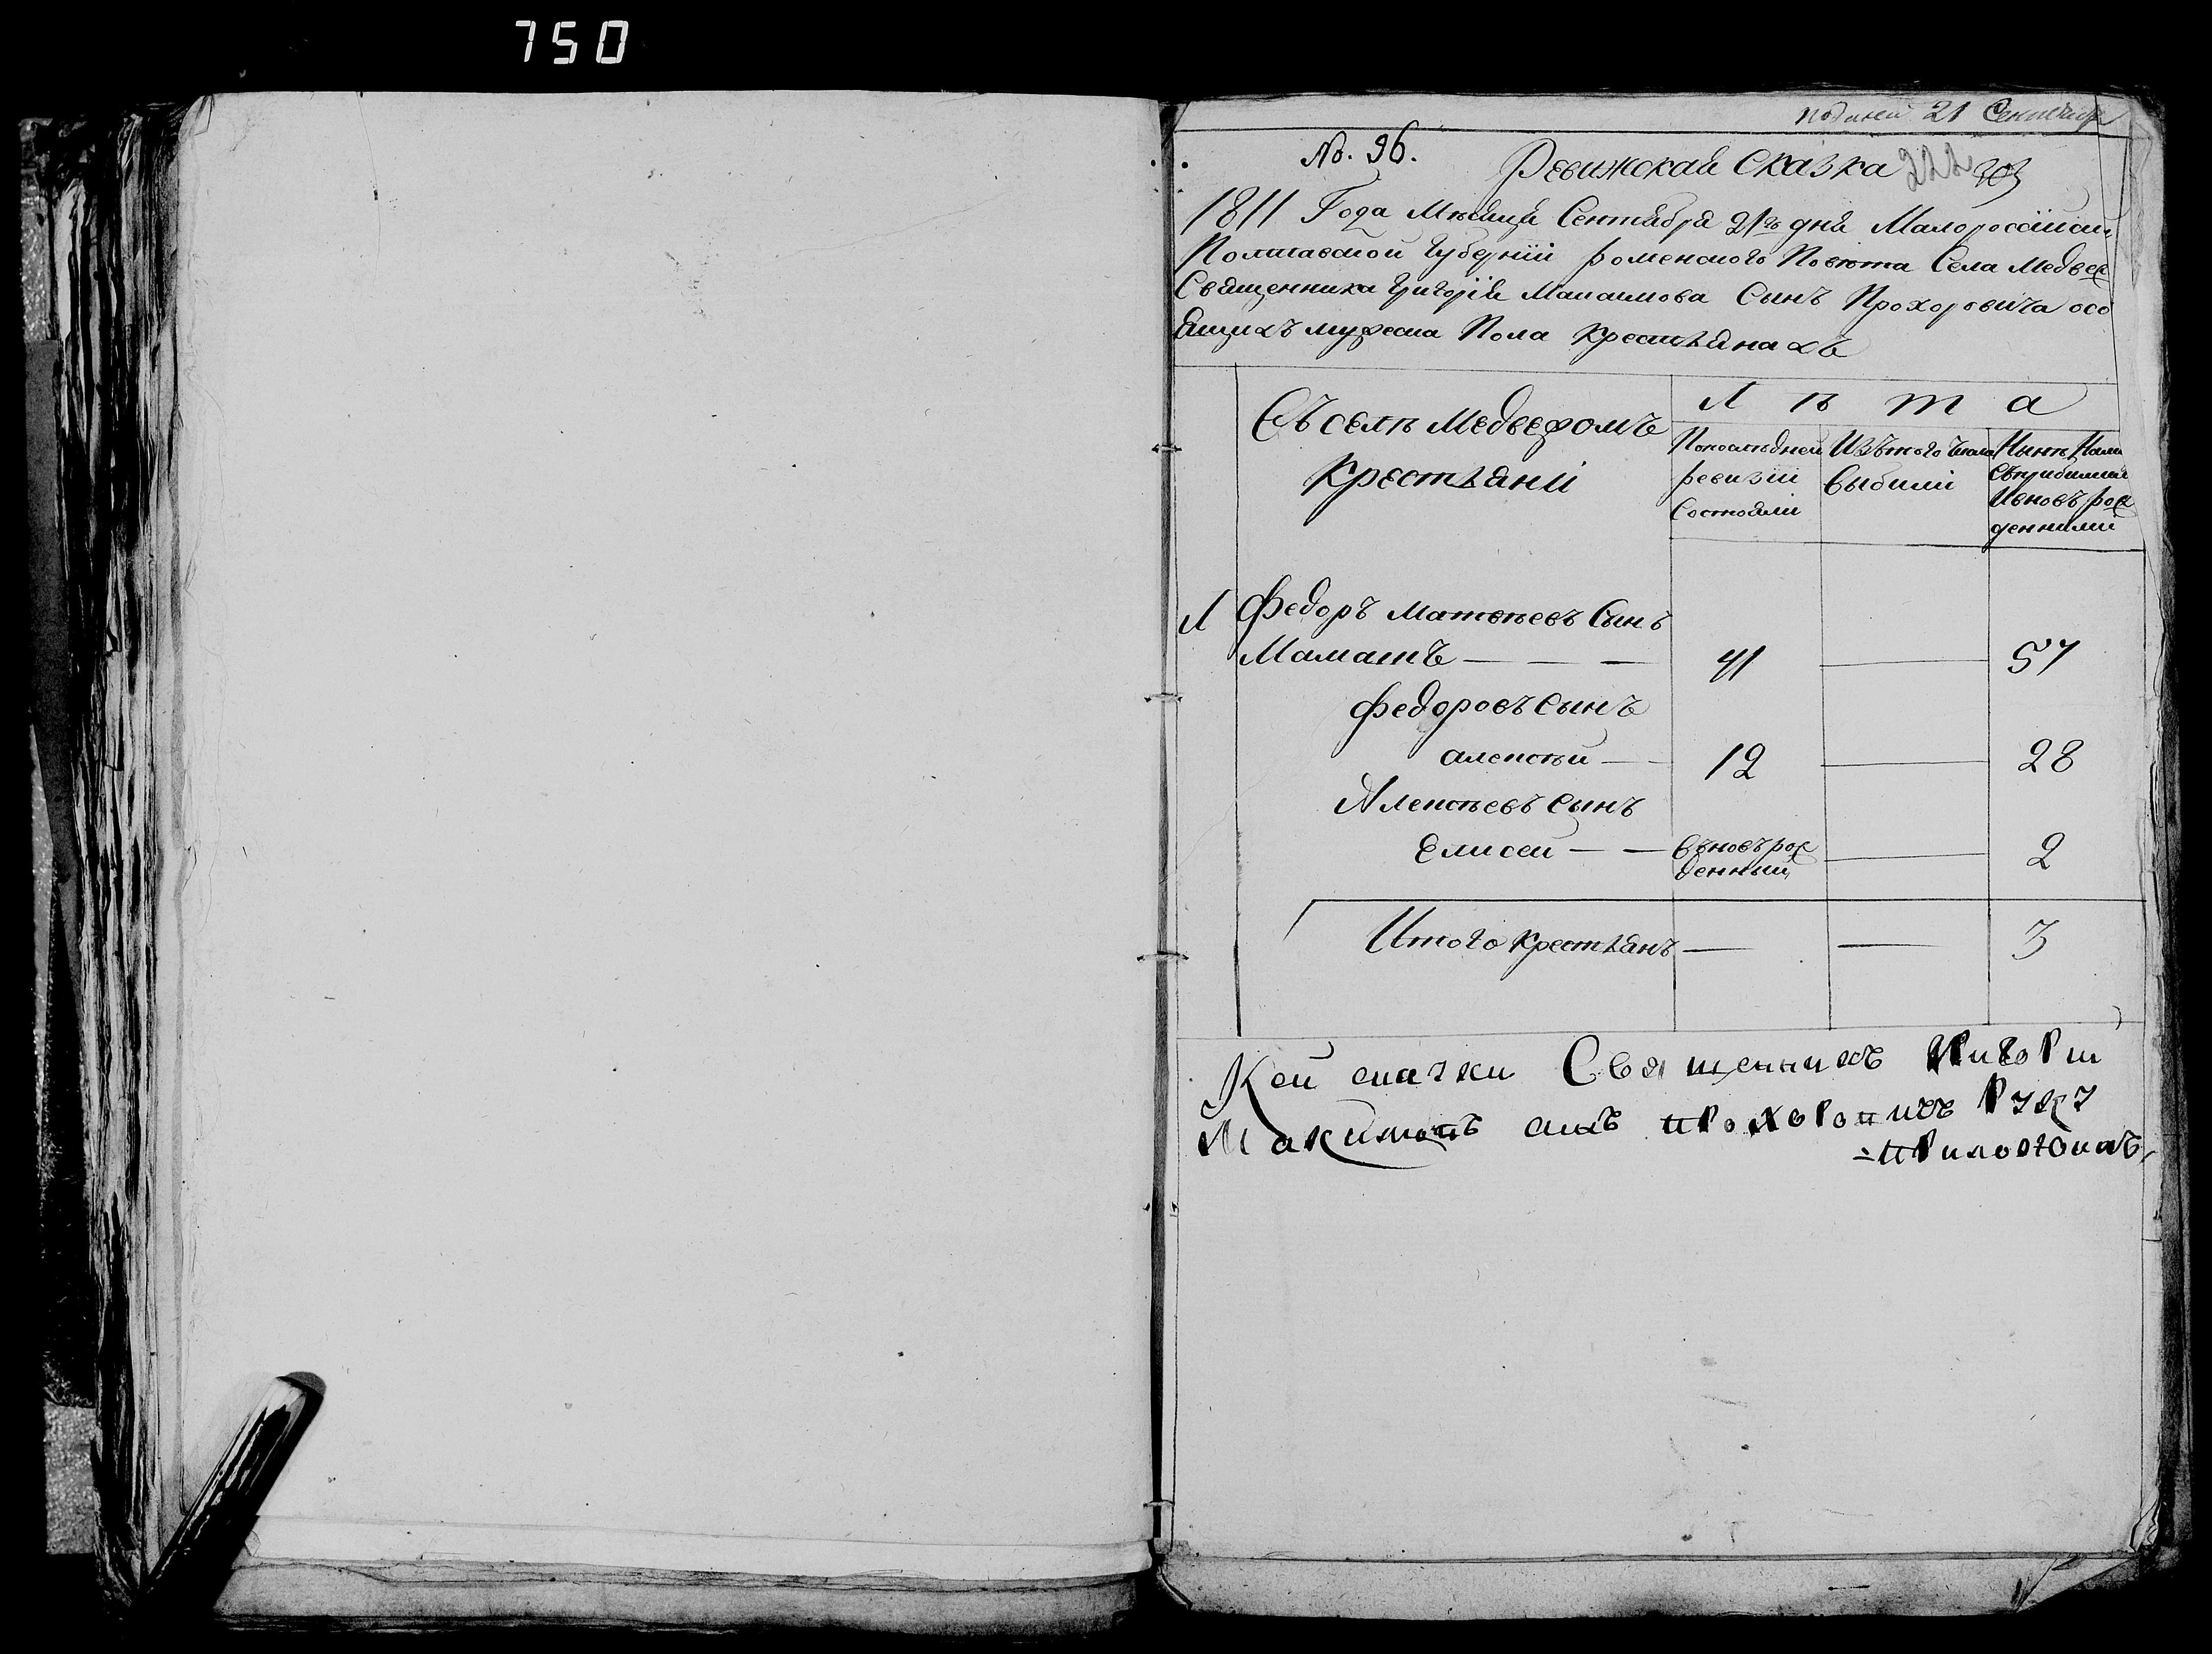 750
21 Сентября
No. 96.
Ревижская Сказка 222 303
1811 Года Мѣсяця Сентября 21го дня Малоросiйской
Полтавской Губернiи роменского Повѣта Села Медвеж
Священника Григорiя Максимова Сынъ Прохоровича осо
ящихъ мужеска Пола крестьянахъ
Съ селѣ Медвежомъ
Крестьяни
Л ѣ т а
По последней
ревизiи
Состояли
Изъ того числа
выбили
Нынѣ
съ прибилими
И вновъ рож
денними
1 Федоръ Матвѣевъ Сынъ
Маматъ — — — 41 — 57
Федоровъ Сынъ
алексѣй — 12 — 28
Алексѣевъ Сынъ
Елисей — — вновъ рож
денный — 2
Итого крестьянъ — — 3
Кей скаски Священникъ Григорiи
Максимовъ синъ Прохоровичъ руку
=приложилъ